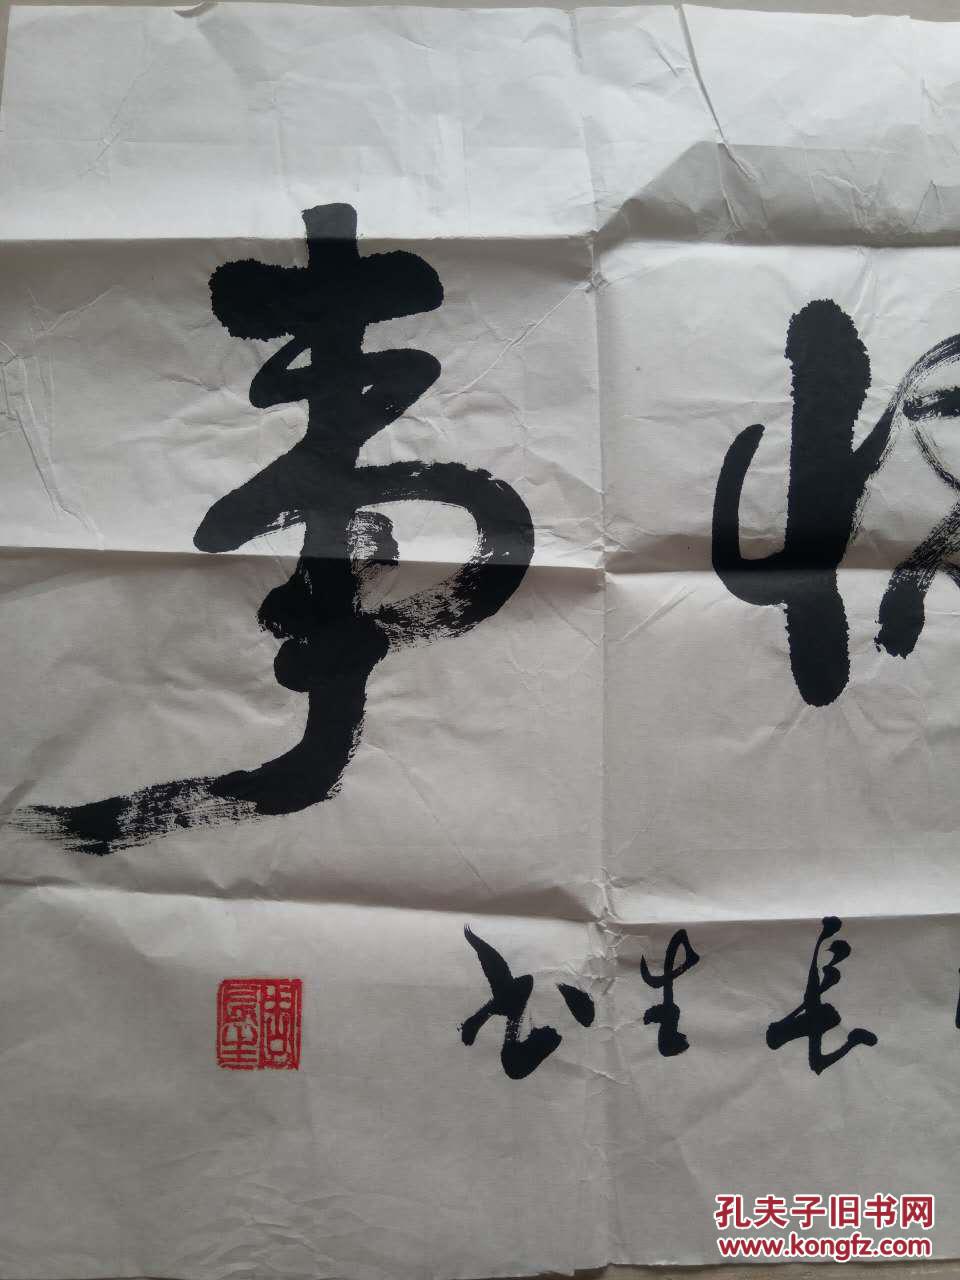 事
長生书
周長生
孔夫子旧书网
www.kongfz.com